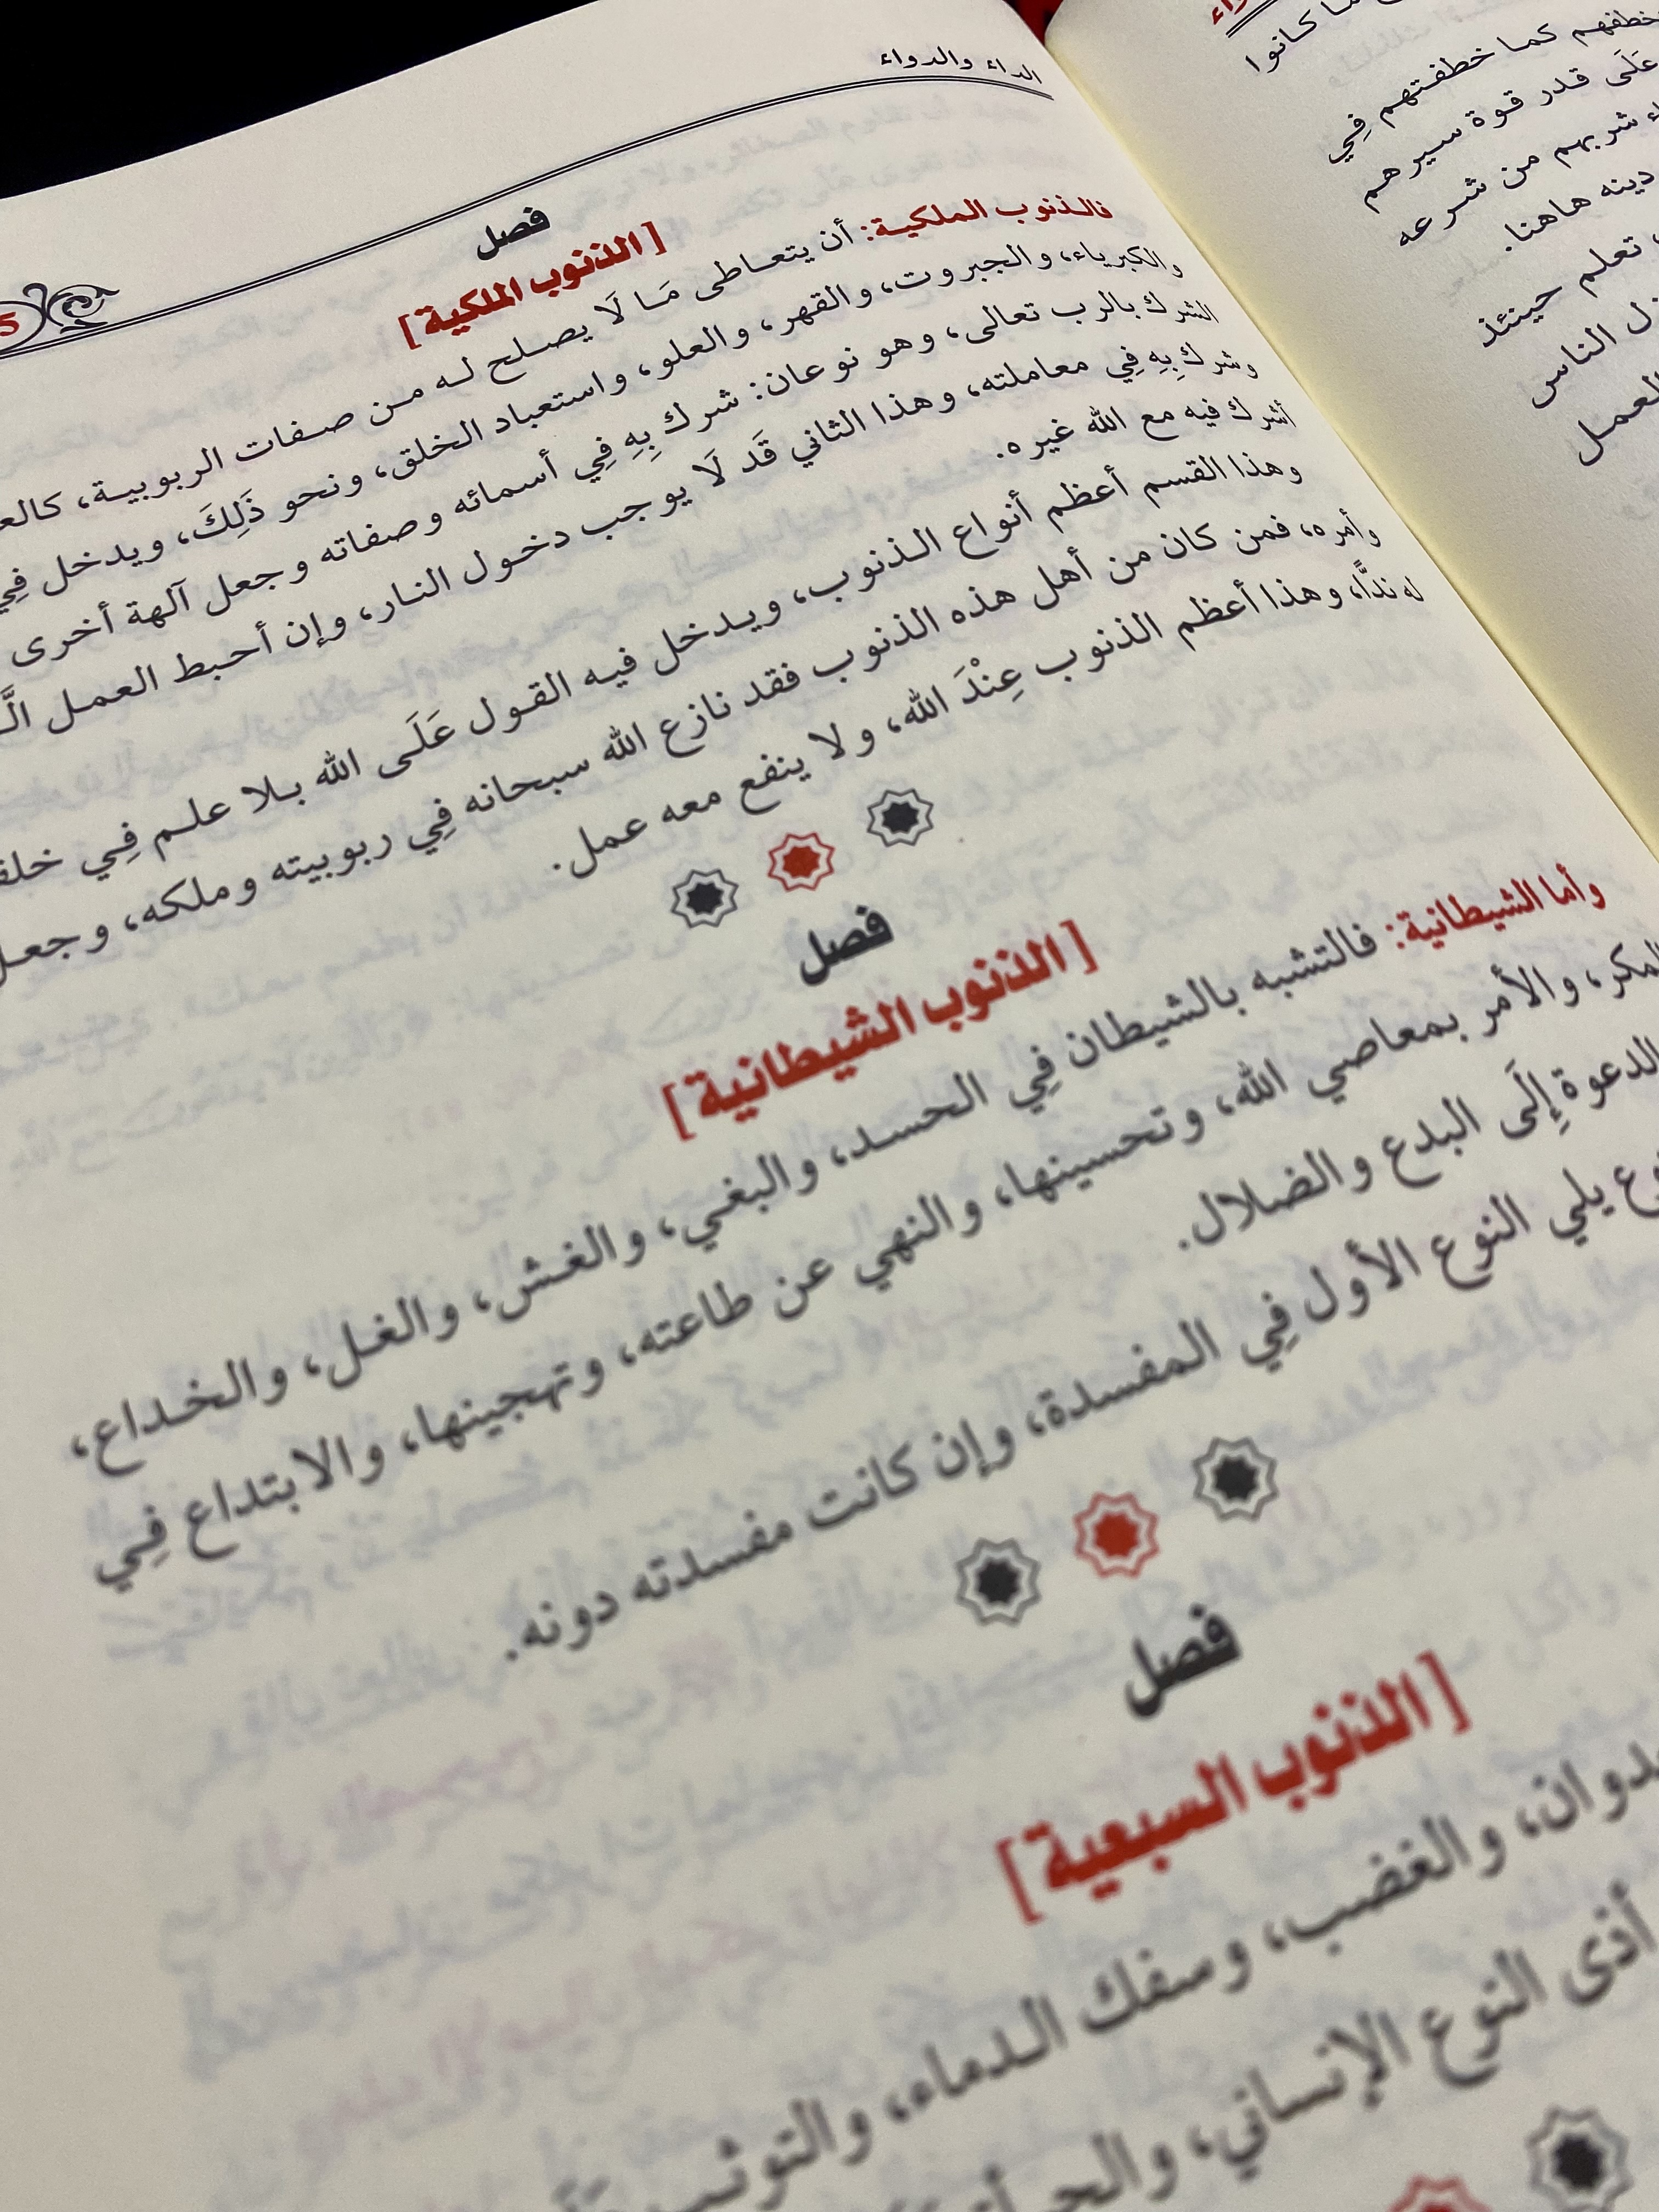 الداء والدواء
فصل
[الذنوب الملكية]
فالذنوب الملكية: أن يتعاطى مَا لَا يصلح له من صفات الربوبية،
والكبرياء، والجبروت، والقهر، والعلو، واستعباد الخلق، ونحو ذَلِكَ، ويدخل فِي
الشرك بالرب تعالى، وهو نوعان: شرك بِهِ فِي أسمائه وصفاته وجعل آلهة أخرى
وشرك بِهِ فِي معاملته، وهذا الثاني قَد لَا يوجب دخول النار، وإن أحبط العمل
أشرك فيه مع الله غيره.
وهذا القسم أعظم أنواع الذنوب، ويدخل فيه القول عَلَى الله بلا علم فِي
وأمره، فمن كان من أهل هذه الذنوب فقد نازع الله سبحانه فِي ربوبيته وملكه، وجعل
له ندًّا، وهذا أعظم الذنوب عِنْدَ الله، ولا ينفع معه عمل.
فصل
[الذنوب الشيطانية]
وأما الشيطانية: فالتشبه بالشيطان فِي الحسد، والبغي، والغش، والغل، والخداع،
والأمر بمعاصي الله، وتحسينها، والنهي عن طاعته، وتهجينها، والابتداع فِي
الدعوة إِلَى البدع والضلال.
يلي النوع الأول فِي المفسدة، وإن كانت مفسدته دونه.
فصل
[الذنوب السبعية]
والغضب، وسفك الدماء، والتوثب
أذى النوع الإنساني،
ما كانوا
كما خطفتهم فِي
عَلَى قدر قوة سيرهم
شربهم من شرعه
دينه هاهنا.
تعلم حينئذ
الناس
العمل